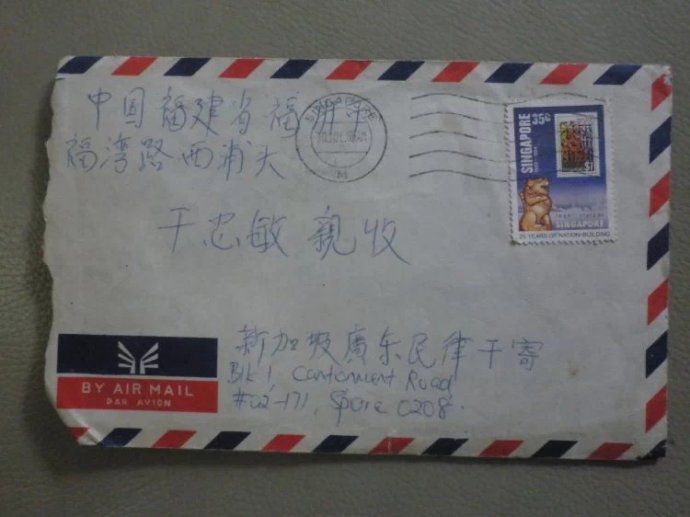 中国福建省福州市
福湾路西浦大
于忠敏 親收
SINGAPORE
35c
SINGAPORE
SINGAPORE
25 YEARS OF NATION-BUILDING
BY AIR MAIL
PAR AVION
新加坡廣东民律于寄
Blk 1, Cantonment Road
#02-171, S'pore 0208.